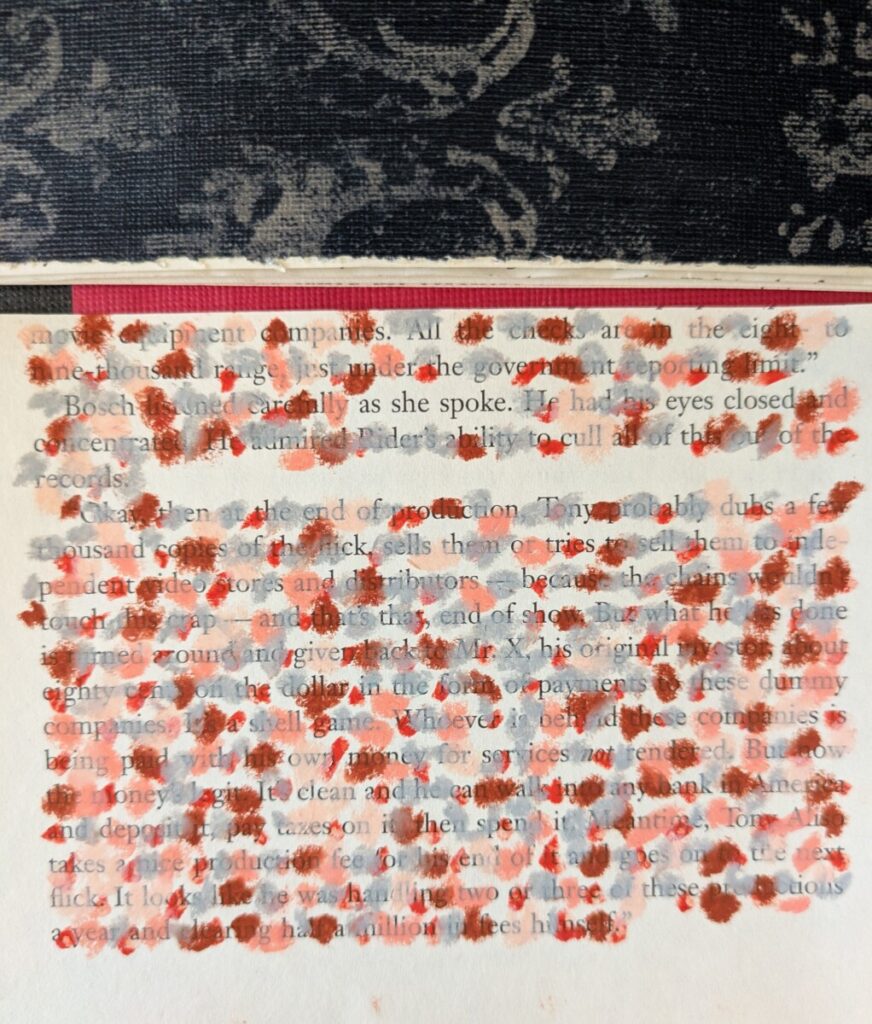 movie equipment companies. All the checks are in the eight- to
nine-thousand range, just under the government reporting limit.”
Bosch listened carefully as she spoke. He had his eyes closed and
concentrated. He admired Rider's ability to cull all of this out of the
records.
“Okay, then at the end of production, Tony probably dubs a few
thousand copies of the flick, sells them or tries to sell them to inde-
pendent video stores and distributors — because the chains wouldn't
touch this crap — and that's that, end of show. But what he has done
is turned around and given back to Mr. X, his original investor, about
eighty cents on the dollar in the form of payments to these dummy
companies. It's a shell game. Whoever is behind these companies is
being paid with his own money for services not rendered. But now
the money's legit. It's clean and he can walk into any bank in America
and deposit it, pay taxes on it, then spend it. Meantime, Tony Aliso
takes a nice production fee for his end of it and goes on to the next
flick. It looks like he was handling two or three of these productions
a year and clearing half a million in fees himself.”